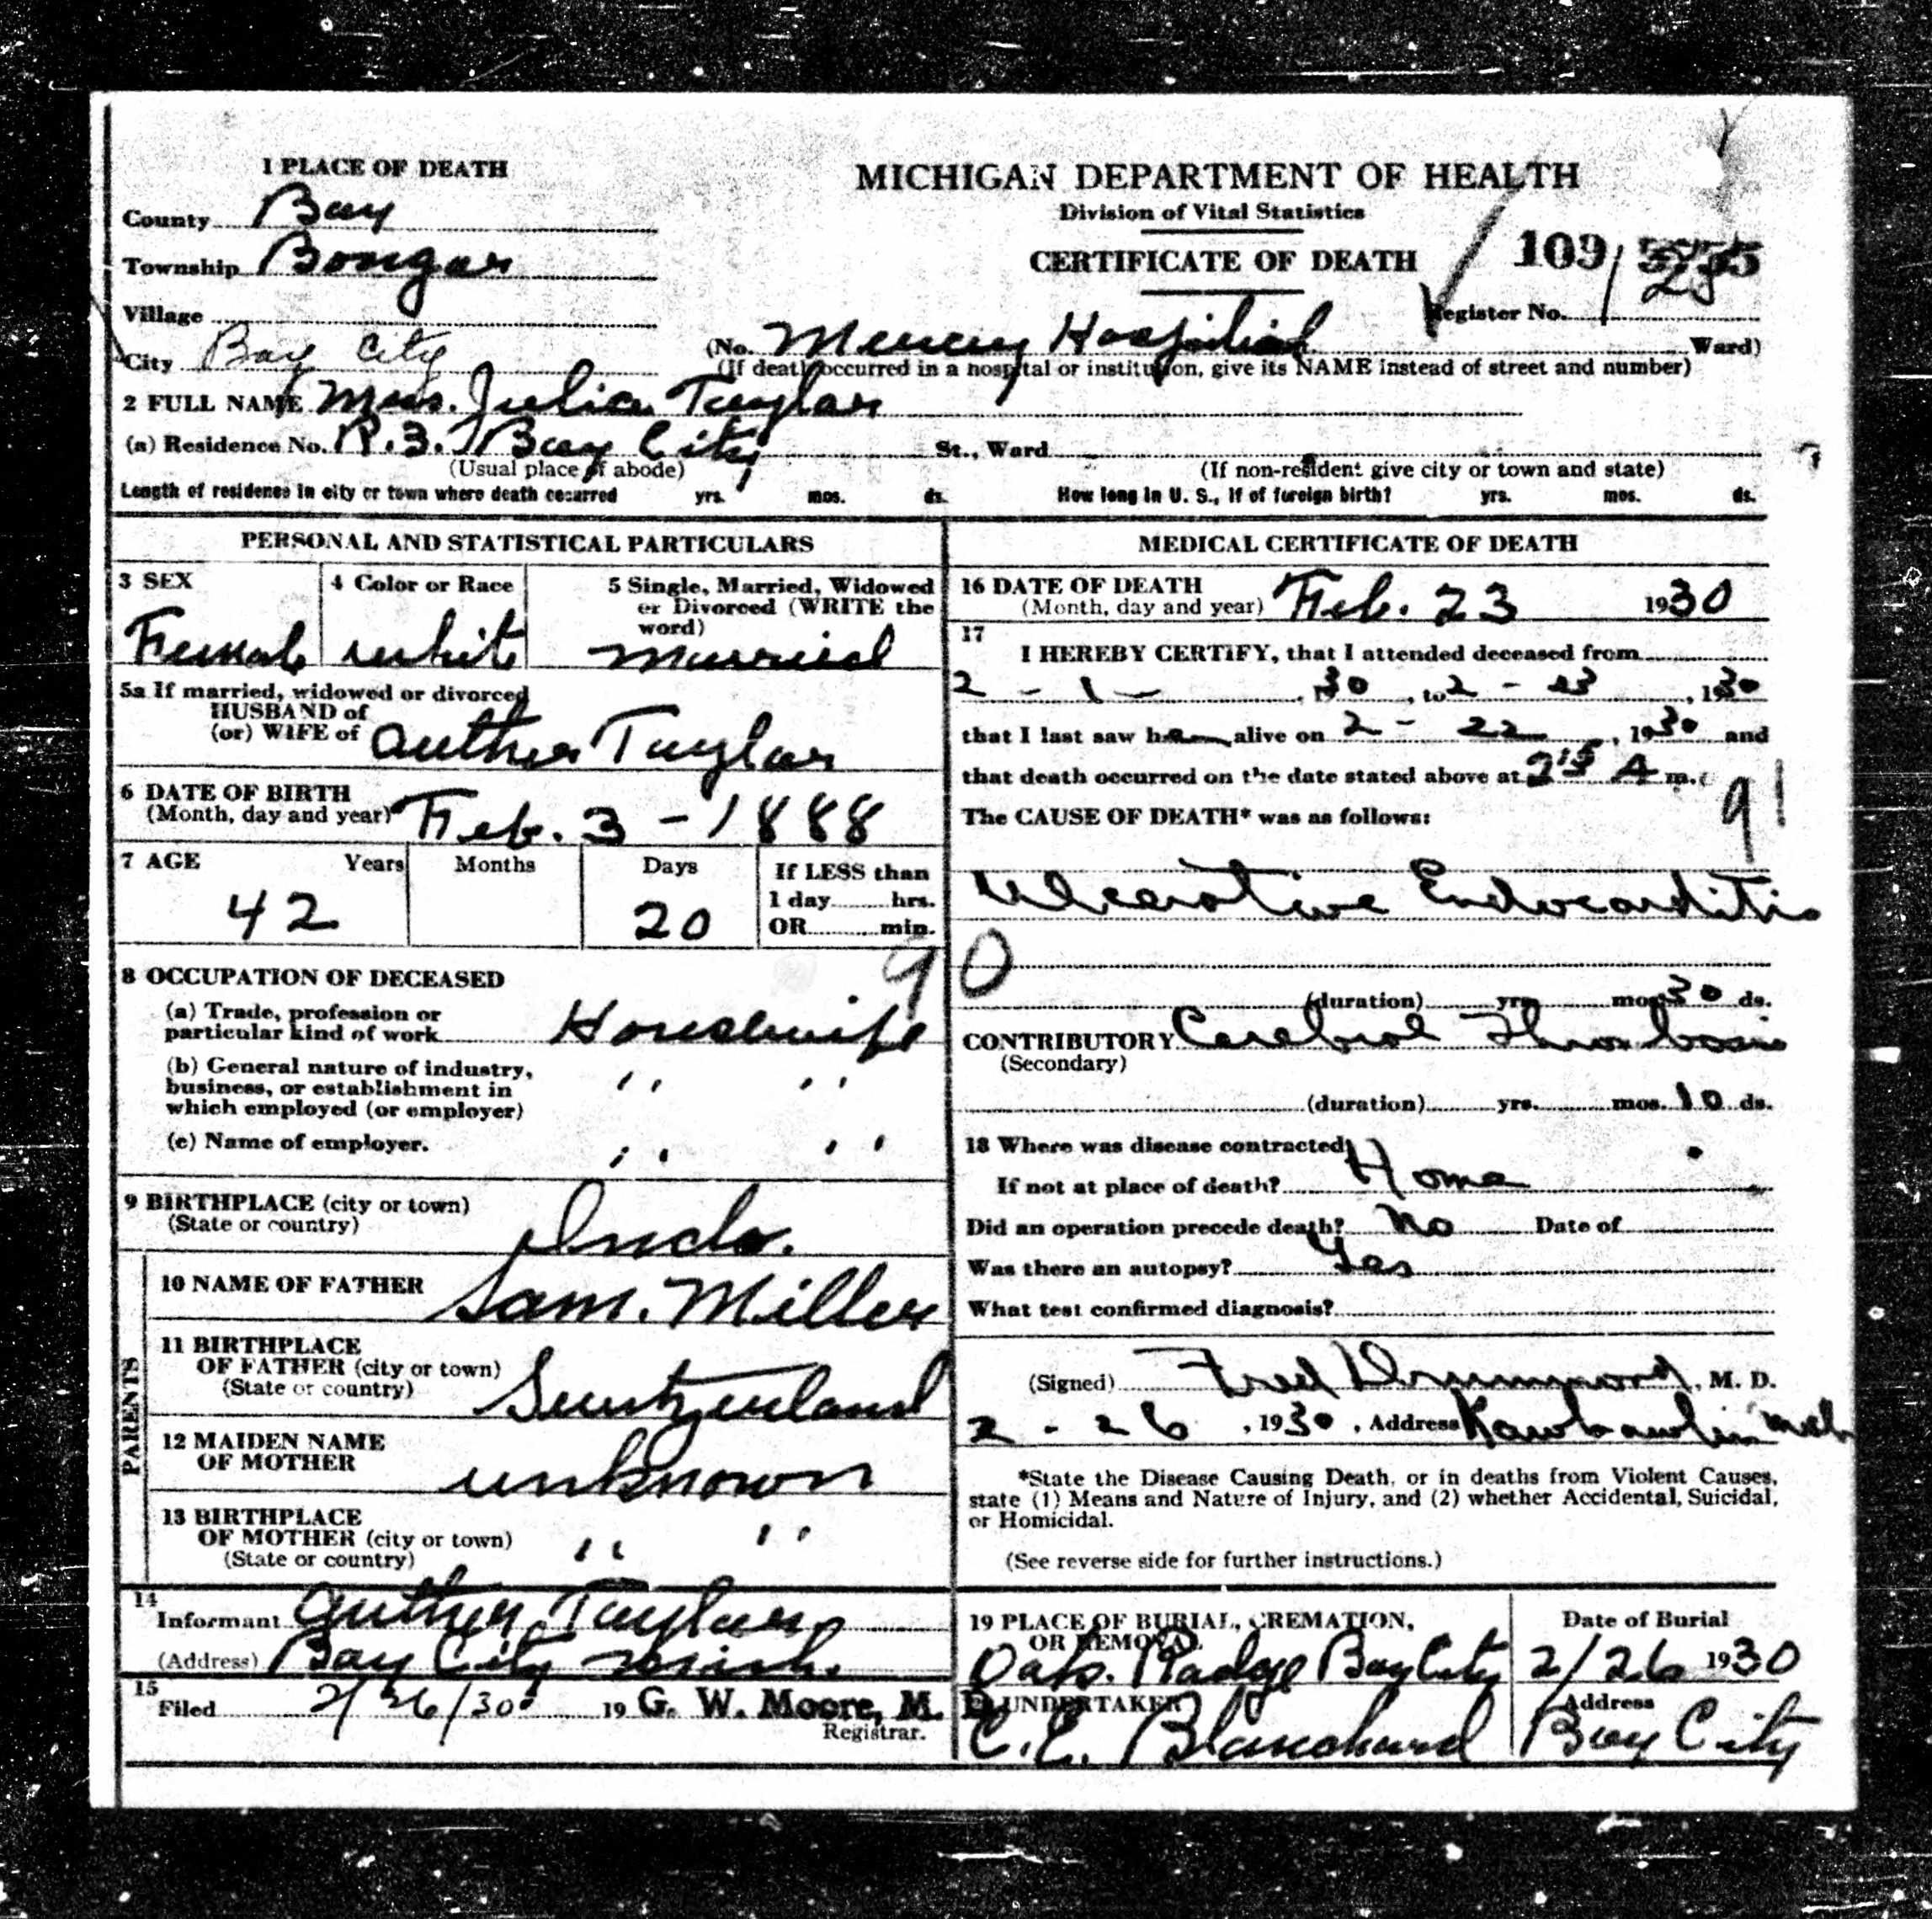 1 PLACE OF DEATH
County Bay
Township Bangor
Village
City Bay City
MICHIGAN DEPARTMENT OF HEALTH
Division of Vital Statistics
CERTIFICATE OF DEATH
109
Register No.
(No. Mercy Hospital Ward)
(If death occurred in a hospital or institution, give its NAME instead of street and number)
2 FULL NAME Mrs. Julia Taylor
(a) Residence No. R.3. Bay City St., Ward
(Usual place of abode) (If non-resident give city or town and state)
Length of residence in city or town where death occurred yrs. mos. ds. How long in U. S., if of foreign birth? yrs. mos. ds.
PERSONAL AND STATISTICAL PARTICULARS
3 SEX
Female
4 Color or Race
white
5 Single, Married, Widowed
or Divorced (WRITE the
word)
Married
5a If married, widowed or divorced
HUSBAND of
(or) WIFE of Auther Taylor
6 DATE OF BIRTH
(Month, day and year) Feb. 3 - 1888
7 AGE Years Months Days If LESS than
1 day hrs.
OR min.
42 20
90
8 OCCUPATION OF DECEASED
(a) Trade, profession or
particular kind of work Housewife
(b) General nature of industry,
business, or establishment in
which employed (or employer) " "
(c) Name of employer. " "
9 BIRTHPLACE (city or town)
(State or country)
PARENTS
10 NAME OF FATHER Sam. Miller
11 BIRTHPLACE
OF FATHER (city or town)
(State or country) Switzerland
12 MAIDEN NAME
OF MOTHER unknown
13 BIRTHPLACE
OF MOTHER (city or town)
(State or country) " "
14
Informant Auther Taylor
(Address) Bay City Mich.
15
Filed 2/26/30 19 G. W. Moore, M. D.
Registrar.
MEDICAL CERTIFICATE OF DEATH
16 DATE OF DEATH
(Month, day and year) Feb. 23 1930
17
I HEREBY CERTIFY, that I attended deceased from
2 - 1 - , 1930 , to 2 - 23 , 1930
that I last saw her alive on 2 - 22 , 1930 and
that death occurred on the date stated above at 2 15 A m.
The CAUSE OF DEATH* was as follows:
91
Ulcerative Endocarditis
(duration) yrs. mos. 30 ds.
CONTRIBUTORY Cerebral Thrombosis
(Secondary)
(duration) yrs. mos. 10 ds.
18 Where was disease contracted
If not at place of death? Home
Did an operation precede death? No Date of
Was there an autopsy? Yes
What test confirmed diagnosis?
(Signed) Fred Drummond, M. D.
2 - 26 , 1930 , Address Kawkawlin Mich
*State the Disease Causing Death, or in deaths from Violent Causes,
state (1) Means and Nature of Injury, and (2) whether Accidental, Suicidal,
or Homicidal.
(See reverse side for further instructions.)
19 PLACE OF BURIAL, CREMATION,
OR REMOVAL
Oak. Radge Bay City
Date of Burial
2/26 1930
UNDERTAKER
C.E. Blanchard
Address
Bay City